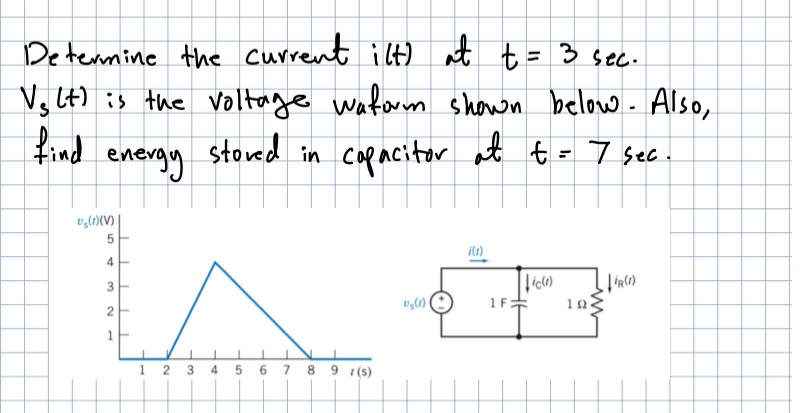 Determine the current i(t) at t = 3 sec.
Vs(t) is the voltage waform shown below. Also,
find energy stored in capacitor at t = 7 sec.
vs(t)(V)
5
4
3
2
1
1 2 3 4 5 6 7 8 9 t(s)
i(t)
iC(t)
iR(t)
vs(t)
+
−
1 F
1 Ω